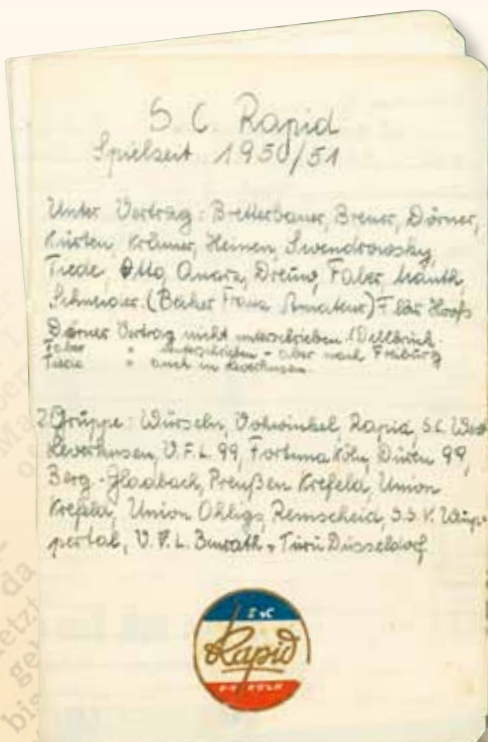 S. C. Rapid
Spielzeit 1950/51
Unter Vertrag: Bretterbauer, Breuer, Dörner,
Kürten, Krämer, Heinen, Swendrowsky,
Tiede, Otto, Quarz, Faber,
Schneider. (Becher Franz Amateur)
Dörner Vertrag nicht unterschrieben. (Dellbrück.
Faber " unterschrieben - aber nach Freiburg
Tiede " auch in Leverkusen.
2. Gruppe: Würseln, Vohwinkel Rapid, S.C. West
Leverkusen, V.F.L. 99, Fortuna Köln, Düren 99,
Berg-Gladbach, Preußen Krefeld, Union
Krefeld, Union Ohligs, Remscheid, S.S.V. Wup-
pertal, V.F.L. Benrath, Turu Düsseldorf
Rapid
KÖLN